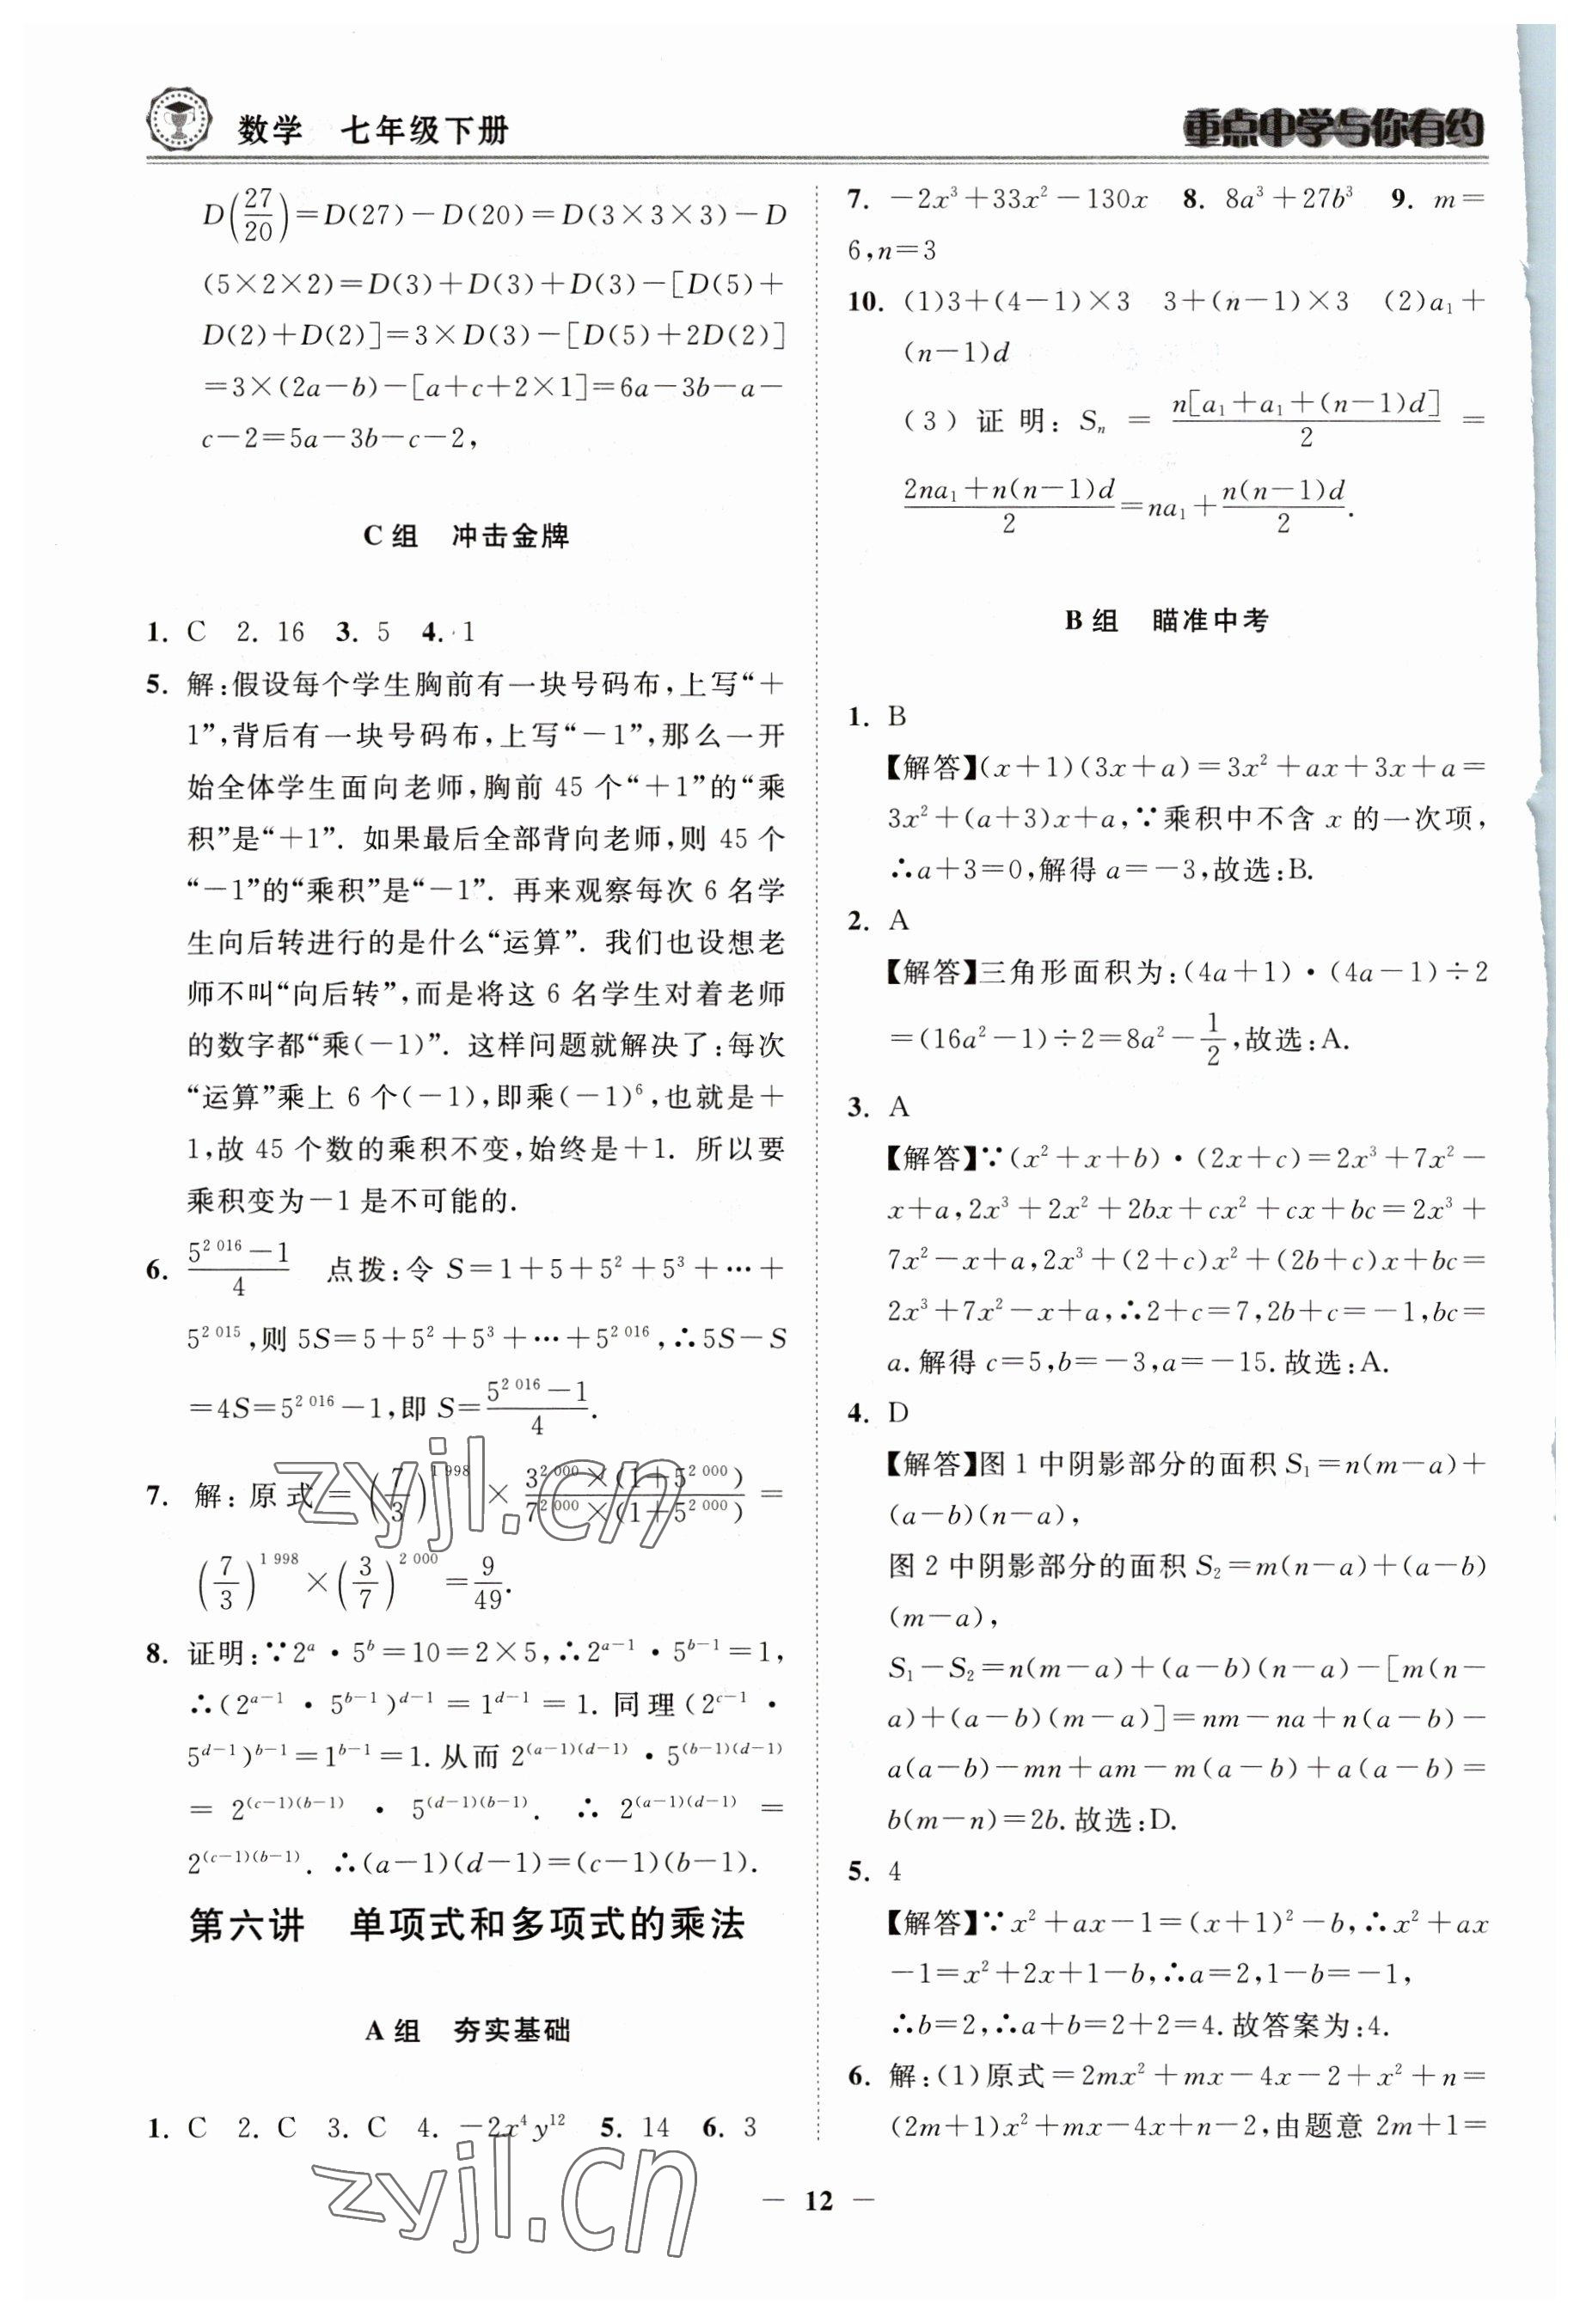 数学 七年级下册
重点中学与你有约
D(27/20)=D(27)-D(20)=D(3×3×3)-D
(5×2×2)=D(3)+D(3)+D(3)-[D(5)+
D(2)+D(2)]=3×D(3)-[D(5)+2D(2)]
=3×(2a-b)-[a+c+2×1]=6a-3b-a-
c-2=5a-3b-c-2,
C组 冲击金牌
1. C 2. 16 3. 5 4. 1
5. 解:假设每个学生胸前有一块号码布,上写“+
1”,背后有一块号码布,上写“-1”,那么一开
始全体学生面向老师,胸前 45 个“+1”的“乘
积”是“+1”. 如果最后全部背向老师,则 45 个
“-1”的“乘积”是“-1”. 再来观察每次 6 名学
生向后转进行的是什么“运算”. 我们也设想老
师不叫“向后转”,而是将这 6 名学生对着老师
的数字都“乘(-1)”. 这样问题就解决了:每次
“运算”乘上 6 个(-1),即乘(-1)⁶,也就是+
1,故 45 个数的乘积不变,始终是+1. 所以要
乘积变为-1 是不可能的.
6. (5^{2 016}-1)/4 点拨:令 S=1+5+5²+5³+…+
5^{2 015},则 5S=5+5²+5³+…+5^{2 016},∴5S-S
=4S=5^{2 016}-1,即 S=(5^{2 016}-1)/4.
7. 解:原式=(7/3)^{1 998}×(3^{2 000}×(1+5^{2 000}))/(7^{2 000}×(1+5^{2 000}))=
(7/3)^{1 998}×(3/7)^{2 000}=9/49.
8. 证明:∵2^a·5^b=10=2×5,∴2^{a-1}·5^{b-1}=1,
∴(2^{a-1}·5^{b-1})^{d-1}=1^{d-1}=1. 同理(2^{c-1}·
5^{d-1})^{b-1}=1^{b-1}=1. 从而 2^{(a-1)(d-1)}·5^{(b-1)(d-1)}
=2^{(c-1)(b-1)}·5^{(d-1)(b-1)}. ∴2^{(a-1)(d-1)}=
2^{(c-1)(b-1)}. ∴(a-1)(d-1)=(c-1)(b-1).
第六讲 单项式和多项式的乘法
A组 夯实基础
1. C 2. C 3. C 4. -2x⁴y¹² 5. 14 6. 3
7. -2x³+33x²-130x 8. 8a³+27b³ 9. m=
6,n=3
10. (1)3+(4-1)×3 3+(n-1)×3 (2)a₁+
(n-1)d
(3)证明:Sₙ=n[a₁+a₁+(n-1)d]/2=
(2na₁+n(n-1)d)/2=na₁+n(n-1)d/2.
B组 瞄准中考
1. B
【解答】(x+1)(3x+a)=3x²+ax+3x+a=
3x²+(a+3)x+a,∵乘积中不含 x 的一次项,
∴a+3=0,解得 a=-3,故选:B.
2. A
【解答】三角形面积为:(4a+1)·(4a-1)÷2
=(16a²-1)÷2=8a²-1/2,故选:A.
3. A
【解答】∵(x²+x+b)·(2x+c)=2x³+7x²-
x+a,2x³+2x²+2bx+cx²+cx+bc=2x³+
7x²-x+a,2x³+(2+c)x²+(2b+c)x+bc=
2x³+7x²-x+a,∴2+c=7,2b+c=-1,bc=
a. 解得 c=5,b=-3,a=-15. 故选:A.
4. D
【解答】图 1 中阴影部分的面积 S₁=n(m-a)+
(a-b)(n-a),
图 2 中阴影部分的面积 S₂=m(n-a)+(a-b)
(m-a),
S₁-S₂=n(m-a)+(a-b)(n-a)-[m(n-
a)+(a-b)(m-a)]=nm-na+n(a-b)-
a(a-b)-mn+am-m(a-b)+a(a-b)=
b(m-n)=2b. 故选:D.
5. 4
【解答】∵x²+ax-1=(x+1)²-b,∴x²+ax
-1=x²+2x+1-b,∴a=2,1-b=-1,
∴b=2,∴a+b=2+2=4. 故答案为:4.
6. 解:(1)原式=2mx²+mx-4x-2+x²+n=
(2m+1)x²+mx-4x+n-2,由题意 2m+1=
— 12 —
zyjl.cn
zyjl.cn